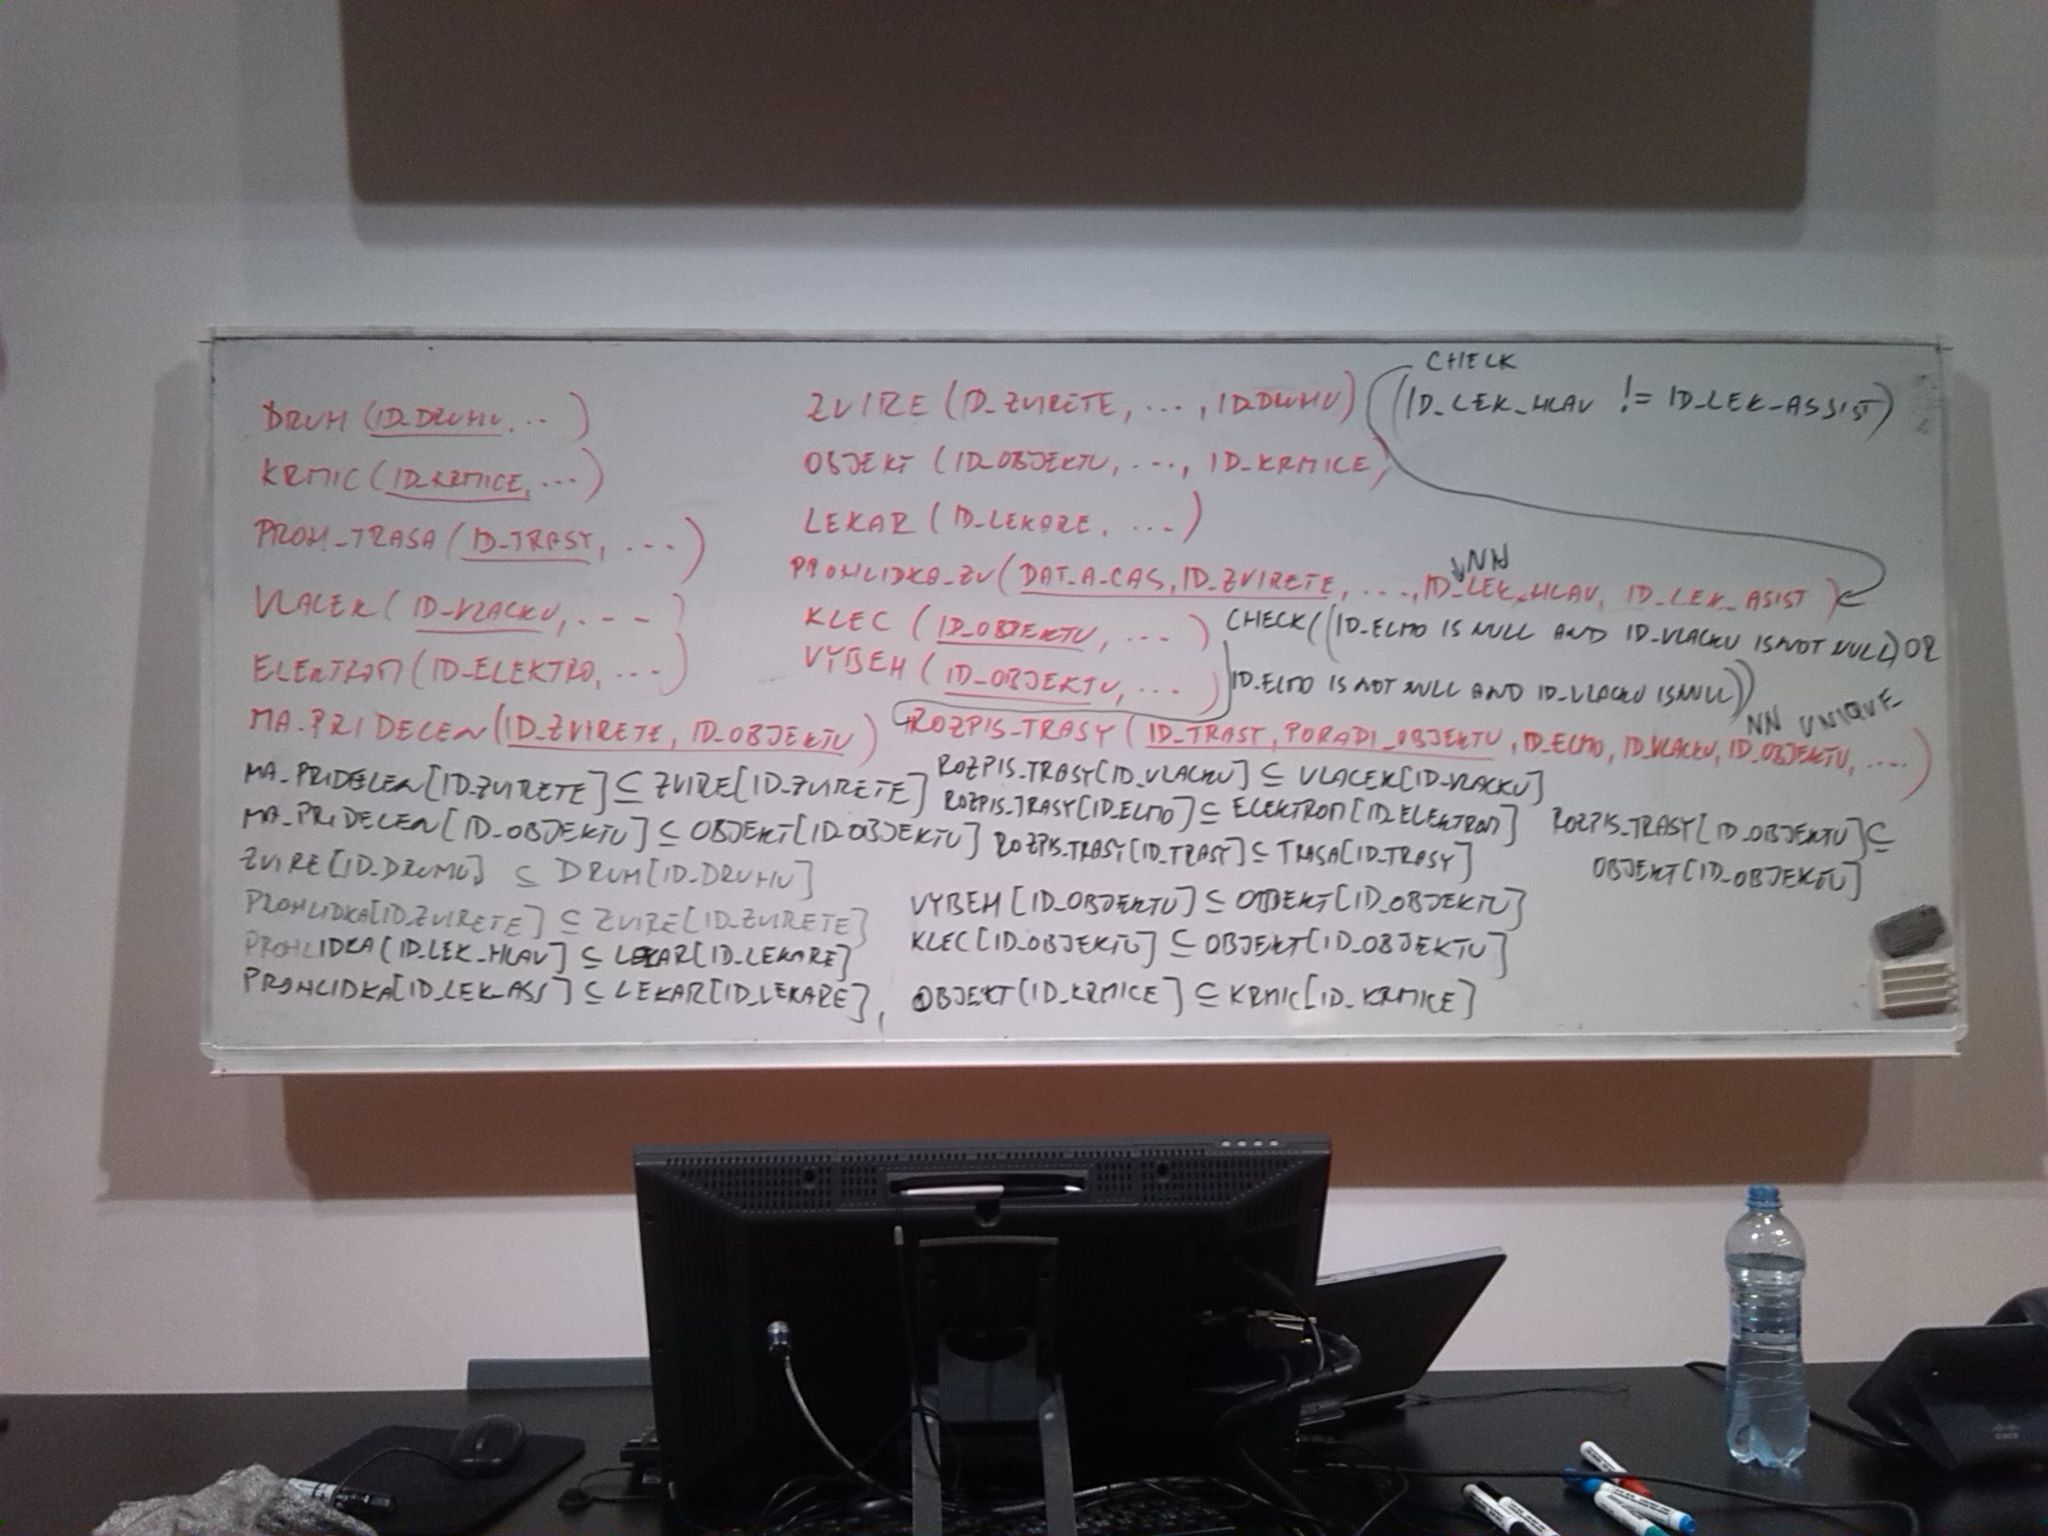 CHECK
DRUH (ID_DRUHU, ...)
ZVIRE (ID_ZVIRETE, ..., ID_DRUHU)
(ID_LEK_HLAV != ID_LEK_ASSIST)
KRMIC (ID_KRMICE, ...)
OBJEKT (ID_OBJEKTU, ...., ID_KRMICE)
PROH_TRASA (ID_TRASY, ...)
LEKAR (ID_LEKARE, ...)
NN
PROHLIDKA_ZV (DAT_A_CAS, ID_ZVIRETE, ...., ID_LEK_HLAV, ID_LEK_ASIST)
VLACEK (ID_VLACKU, ...)
KLEC (ID_OBJEKTU, ...)
CHECK((ID_ELMO IS NULL AND ID_VLACKU IS NOT NULL) OR
ELEKTROM (ID_ELEKTRO, ...)
VYBEH (ID_OBJEKTU, ...)
ID_ELMO IS NOT NULL AND ID_VLACKU IS NULL))
NN UNIQUE
MA_PRIDELEN (ID_ZVIRETE, ID_OBJEKTU)
ROZPIS_TRASY (ID_TRASY, PORADI_OBJEKTU, ID_ELMO, ID_VLACKU, ID_OBJEKTU, .....)
MA_PRIDELEN[ID_ZVIRETE] ⊆ ZVIRE[ID_ZVIRETE]
ROZPIS_TRASY[ID_VLACKU] ⊆ VLACEK[ID_VLACKU]
MA_PRIDELEN[ID_OBJEKTU] ⊆ OBJEKT[ID_OBJEKTU]
ROZPIS_TRASY[ID_ELMO] ⊆ ELEKTROM[ID_ELEKTROM]
ROZPIS_TRASY[ID_OBJEKTU] ⊆
OBJEKT[ID_OBJEKTU]
ROZPIS_TRASY[ID_TRASY] ⊆ TRASA[ID_TRASY]
ZVIRE[ID_DRUHU] ⊆ DRUH[ID_DRUHU]
PROHLIDKA[ID_ZVIRETE] ⊆ ZVIRE[ID_ZVIRETE]
VYBEH [ID_OBJEKTU] ⊆ OBJEKT[ID_OBJEKTU]
PROHLIDKA[ID_LEK_HLAV] ⊆ LEKAR[ID_LEKARE]
KLEC[ID_OBJEKTU] ⊆ OBJEKT[ID_OBJEKTU]
PROHLIDKA[ID_LEK_ASS] ⊆ LEKAR[ID_LEKARE],
OBJEKT[ID_KRMICE] ⊆ KRMIC[ID_KRMICE]
CISCO